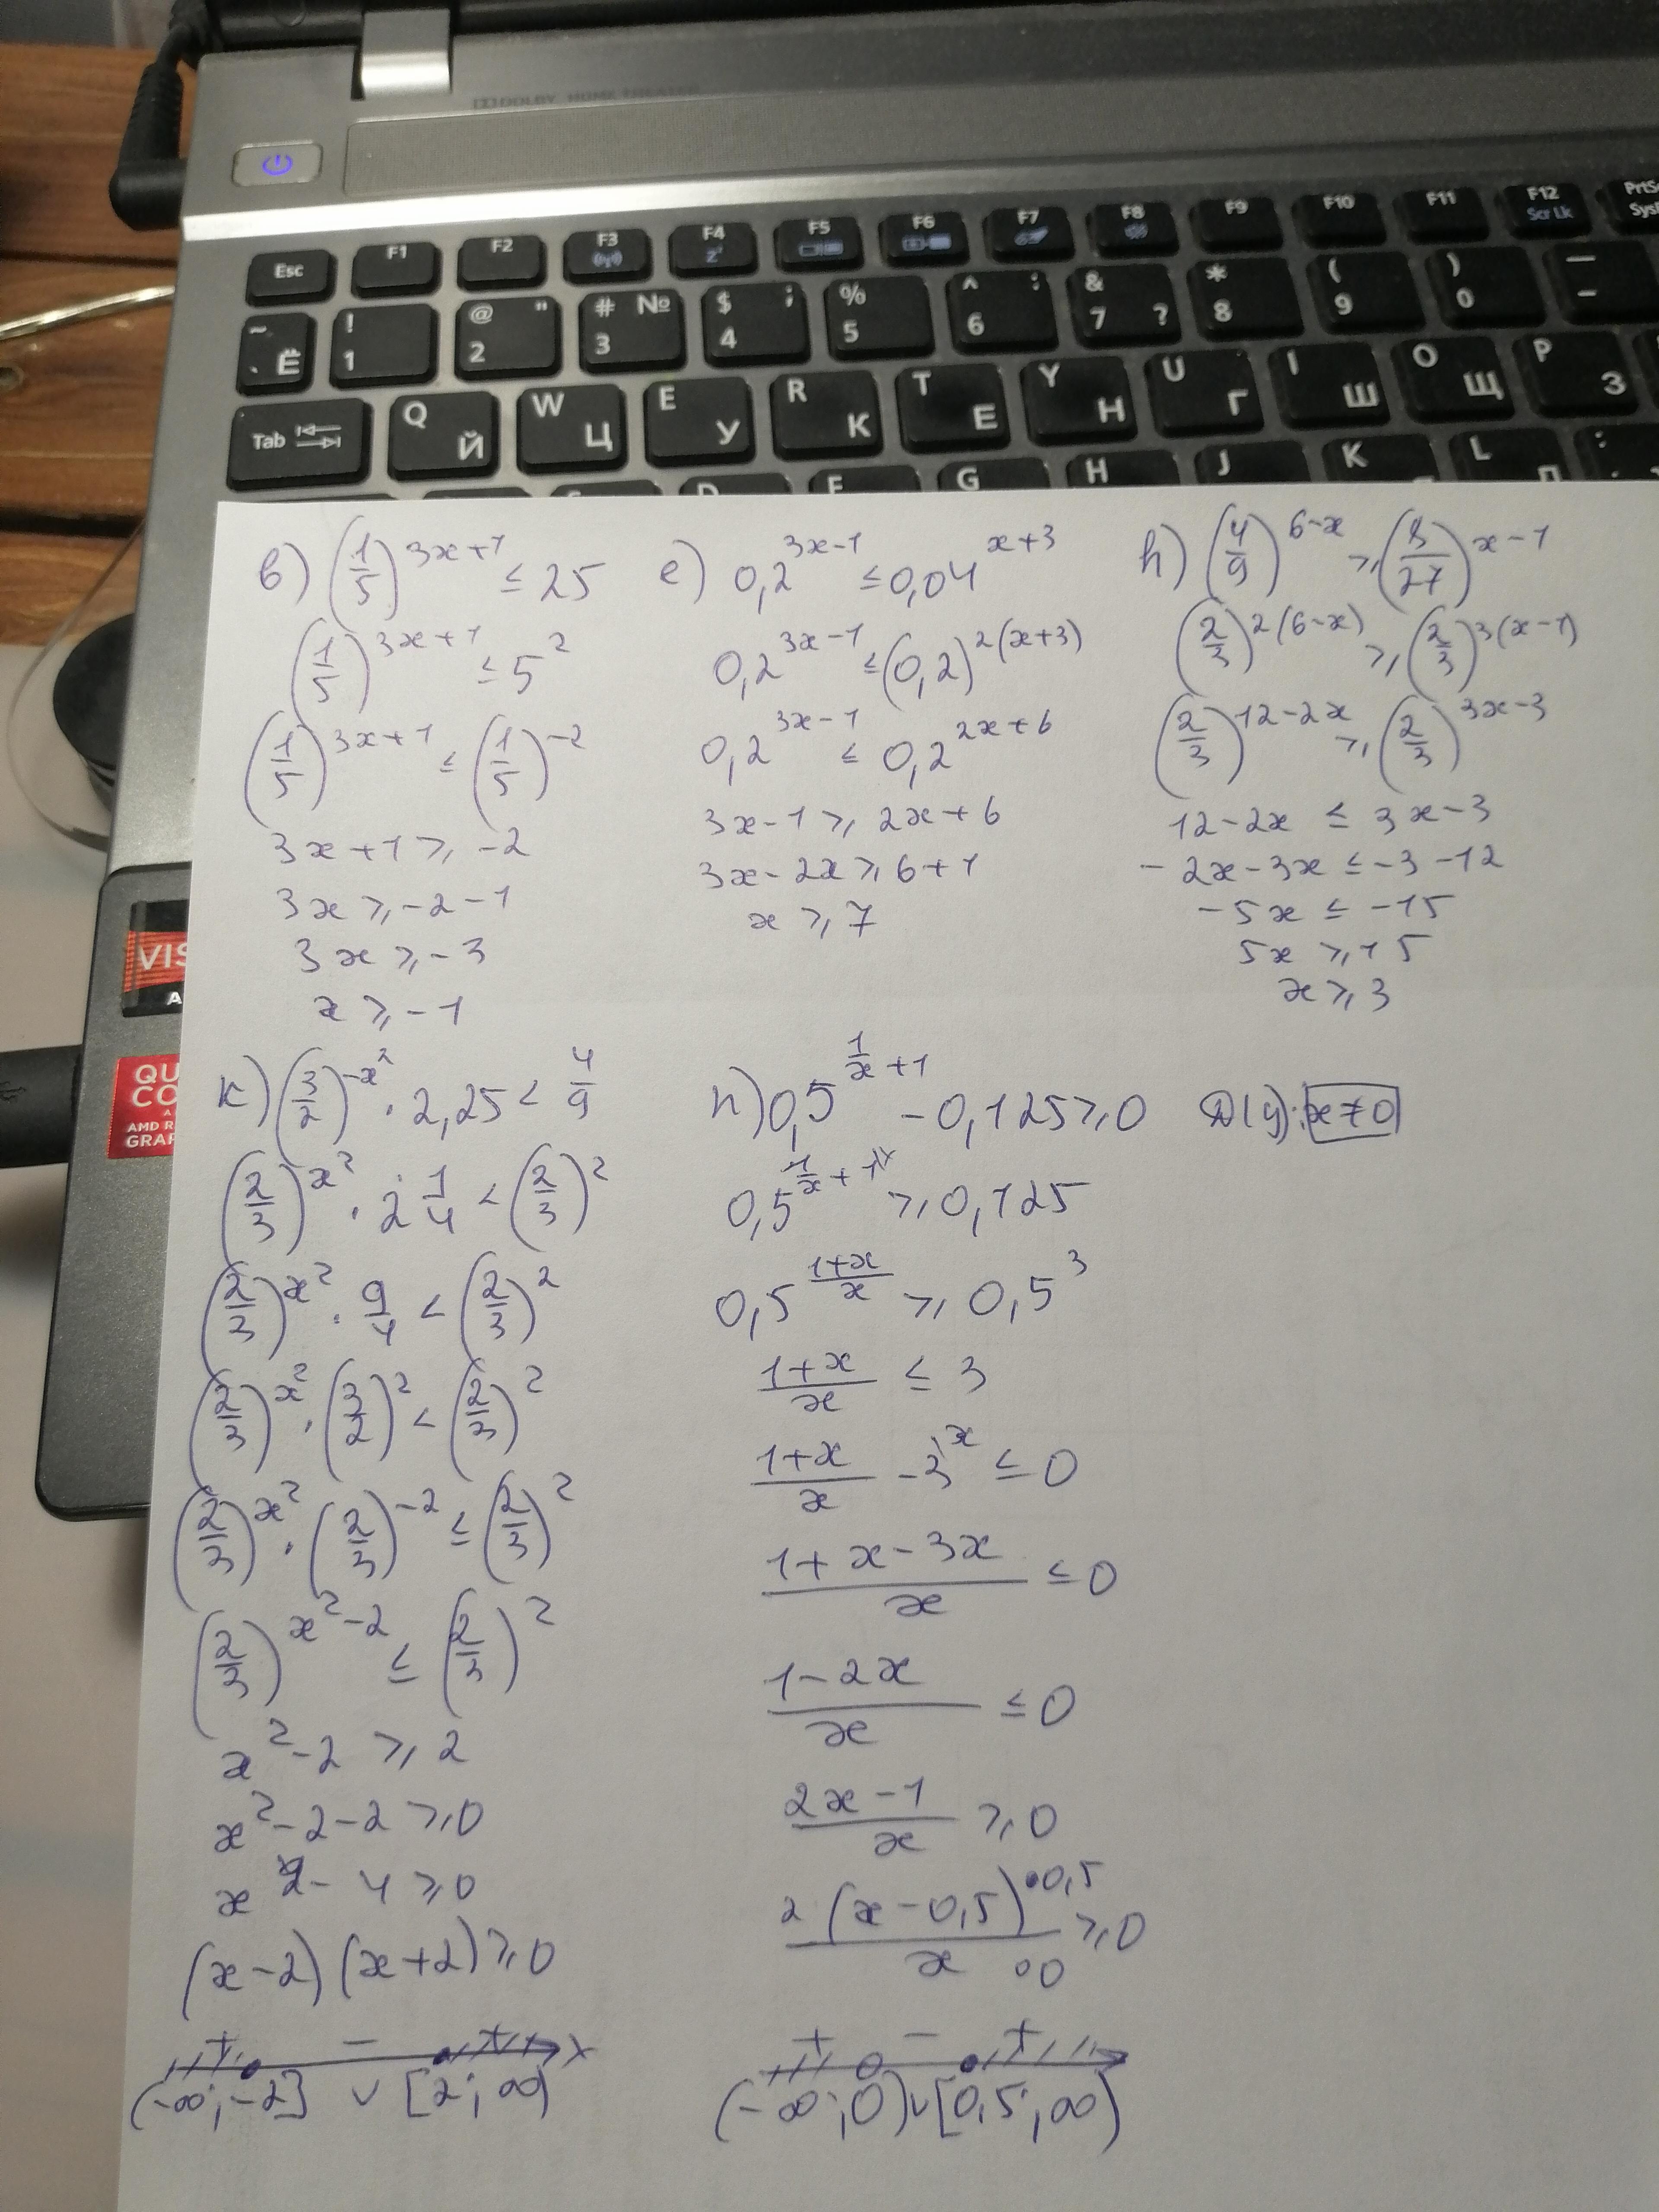 DOLBY HOME THEATER
Esc F1 F2 F3 F4 F5 F6 F7 F8 F9 F10 F11 F12 PrtS
z² Scr Lk Sys
~ ! @ " # № $ ; % ^ : & * ( ) —
. Ё 1 2 3 4 5 6 7 ? 8 9 0 –
Tab Q Й W Ц E У R К T Е Y Н U Г I Ш O Щ P З
D F G H J K L :
VIS
A
QU
CO
AMD R
GRAP
в) (1/5)^(3x+1) ≤ 25
(1/5)^(3x+1) ≤ 5^2
(1/5)^(3x+1) ≤ (1/5)^(-2)
3x+1 ≥ -2
3x ≥ -2-1
3x ≥ -3
x ≥ -1
е) 0,2^(3x-1) ≤ 0,04^(x+3)
0,2^(3x-1) ≤ (0,2)^(2(x+3))
0,2^(3x-1) ≤ 0,2^(2x+6)
3x-1 ≥ 2x+6
3x-2x ≥ 6+1
x ≥ 7
h) (4/9)^(6-x) ≥ (8/27)^(x-1)
(2/3)^(2(6-x)) ≥ (2/3)^(3(x-1))
(2/3)^(12-2x) ≥ (2/3)^(3x-3)
12-2x ≤ 3x-3
-2x-3x ≤ -3-12
-5x ≤ -15
5x ≥ 15
x ≥ 3
к) (3/2)^(-x^2) · 2,25 < 4/9
(2/3)^(x^2) · 2 1/4 < (2/3)^2
(2/3)^(x^2) · 9/4 < (2/3)^2
(2/3)^(x^2) · (3/2)^2 < (2/3)^2
(2/3)^(x^2) · (2/3)^(-2) ≤ (2/3)^2
(2/3)^(x^2-2) ≤ (2/3)^2
x^2-2 ≥ 2
x^2-2-2 ≥ 0
x^2-4 ≥ 0
(x-2)(x+2) ≥ 0
+ - + x
(-∞; -2] ∪ [2; ∞)
п) 0,5^(1/x+1) - 0,125 ≥ 0 D(y): x≠0
0,5^(1/x+1) ≥ 0,125
0,5^((1+x)/x) ≥ 0,5^3
(1+x)/x ≤ 3
(1+x)/x - 3^\x ≤ 0
(1+x-3x)/x ≤ 0
(1-2x)/x ≤ 0
(2x-1)/x ≥ 0
2(x-0,5)/x ≥ 0 •0,5 ∘0
+ - +
(-∞; 0) ∪ [0,5; ∞)